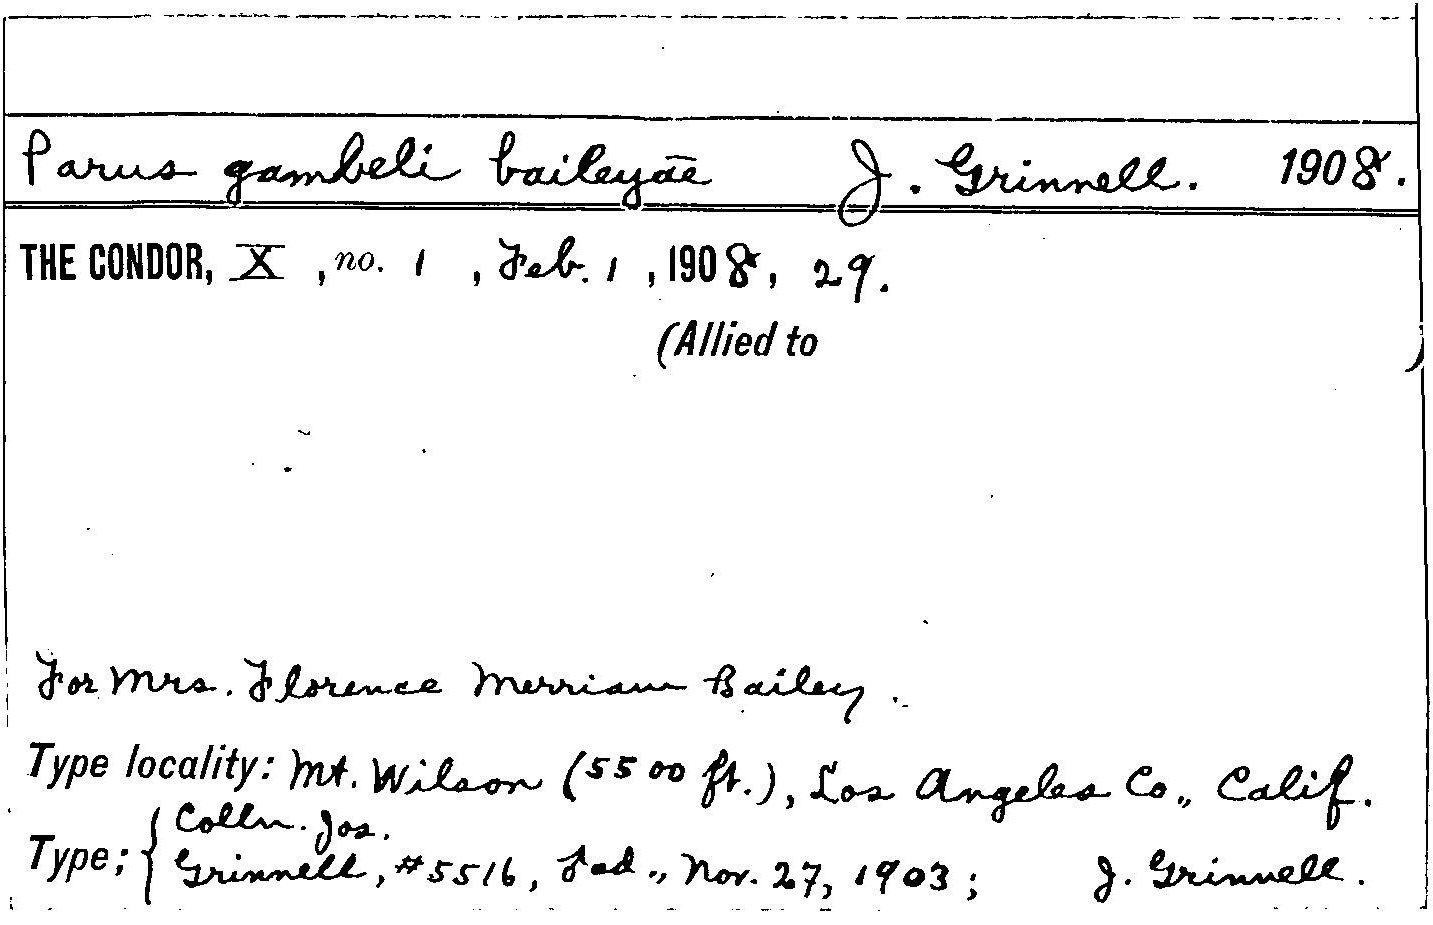 Parus gambeli baileyae J. Grinnell. 1908.
THE CONDOR, X, no. 1, Feb. 1, 1908, 29.
(Allied to )
For Mrs. Florence Merriam Bailey.
Type locality: Mt. Wilson (5500 ft.), Los Angeles Co., Calif.
Colln. Jos.
Type; { Grinnell, #5516, Fad., Nov. 27, 1903; J. Grinnell.